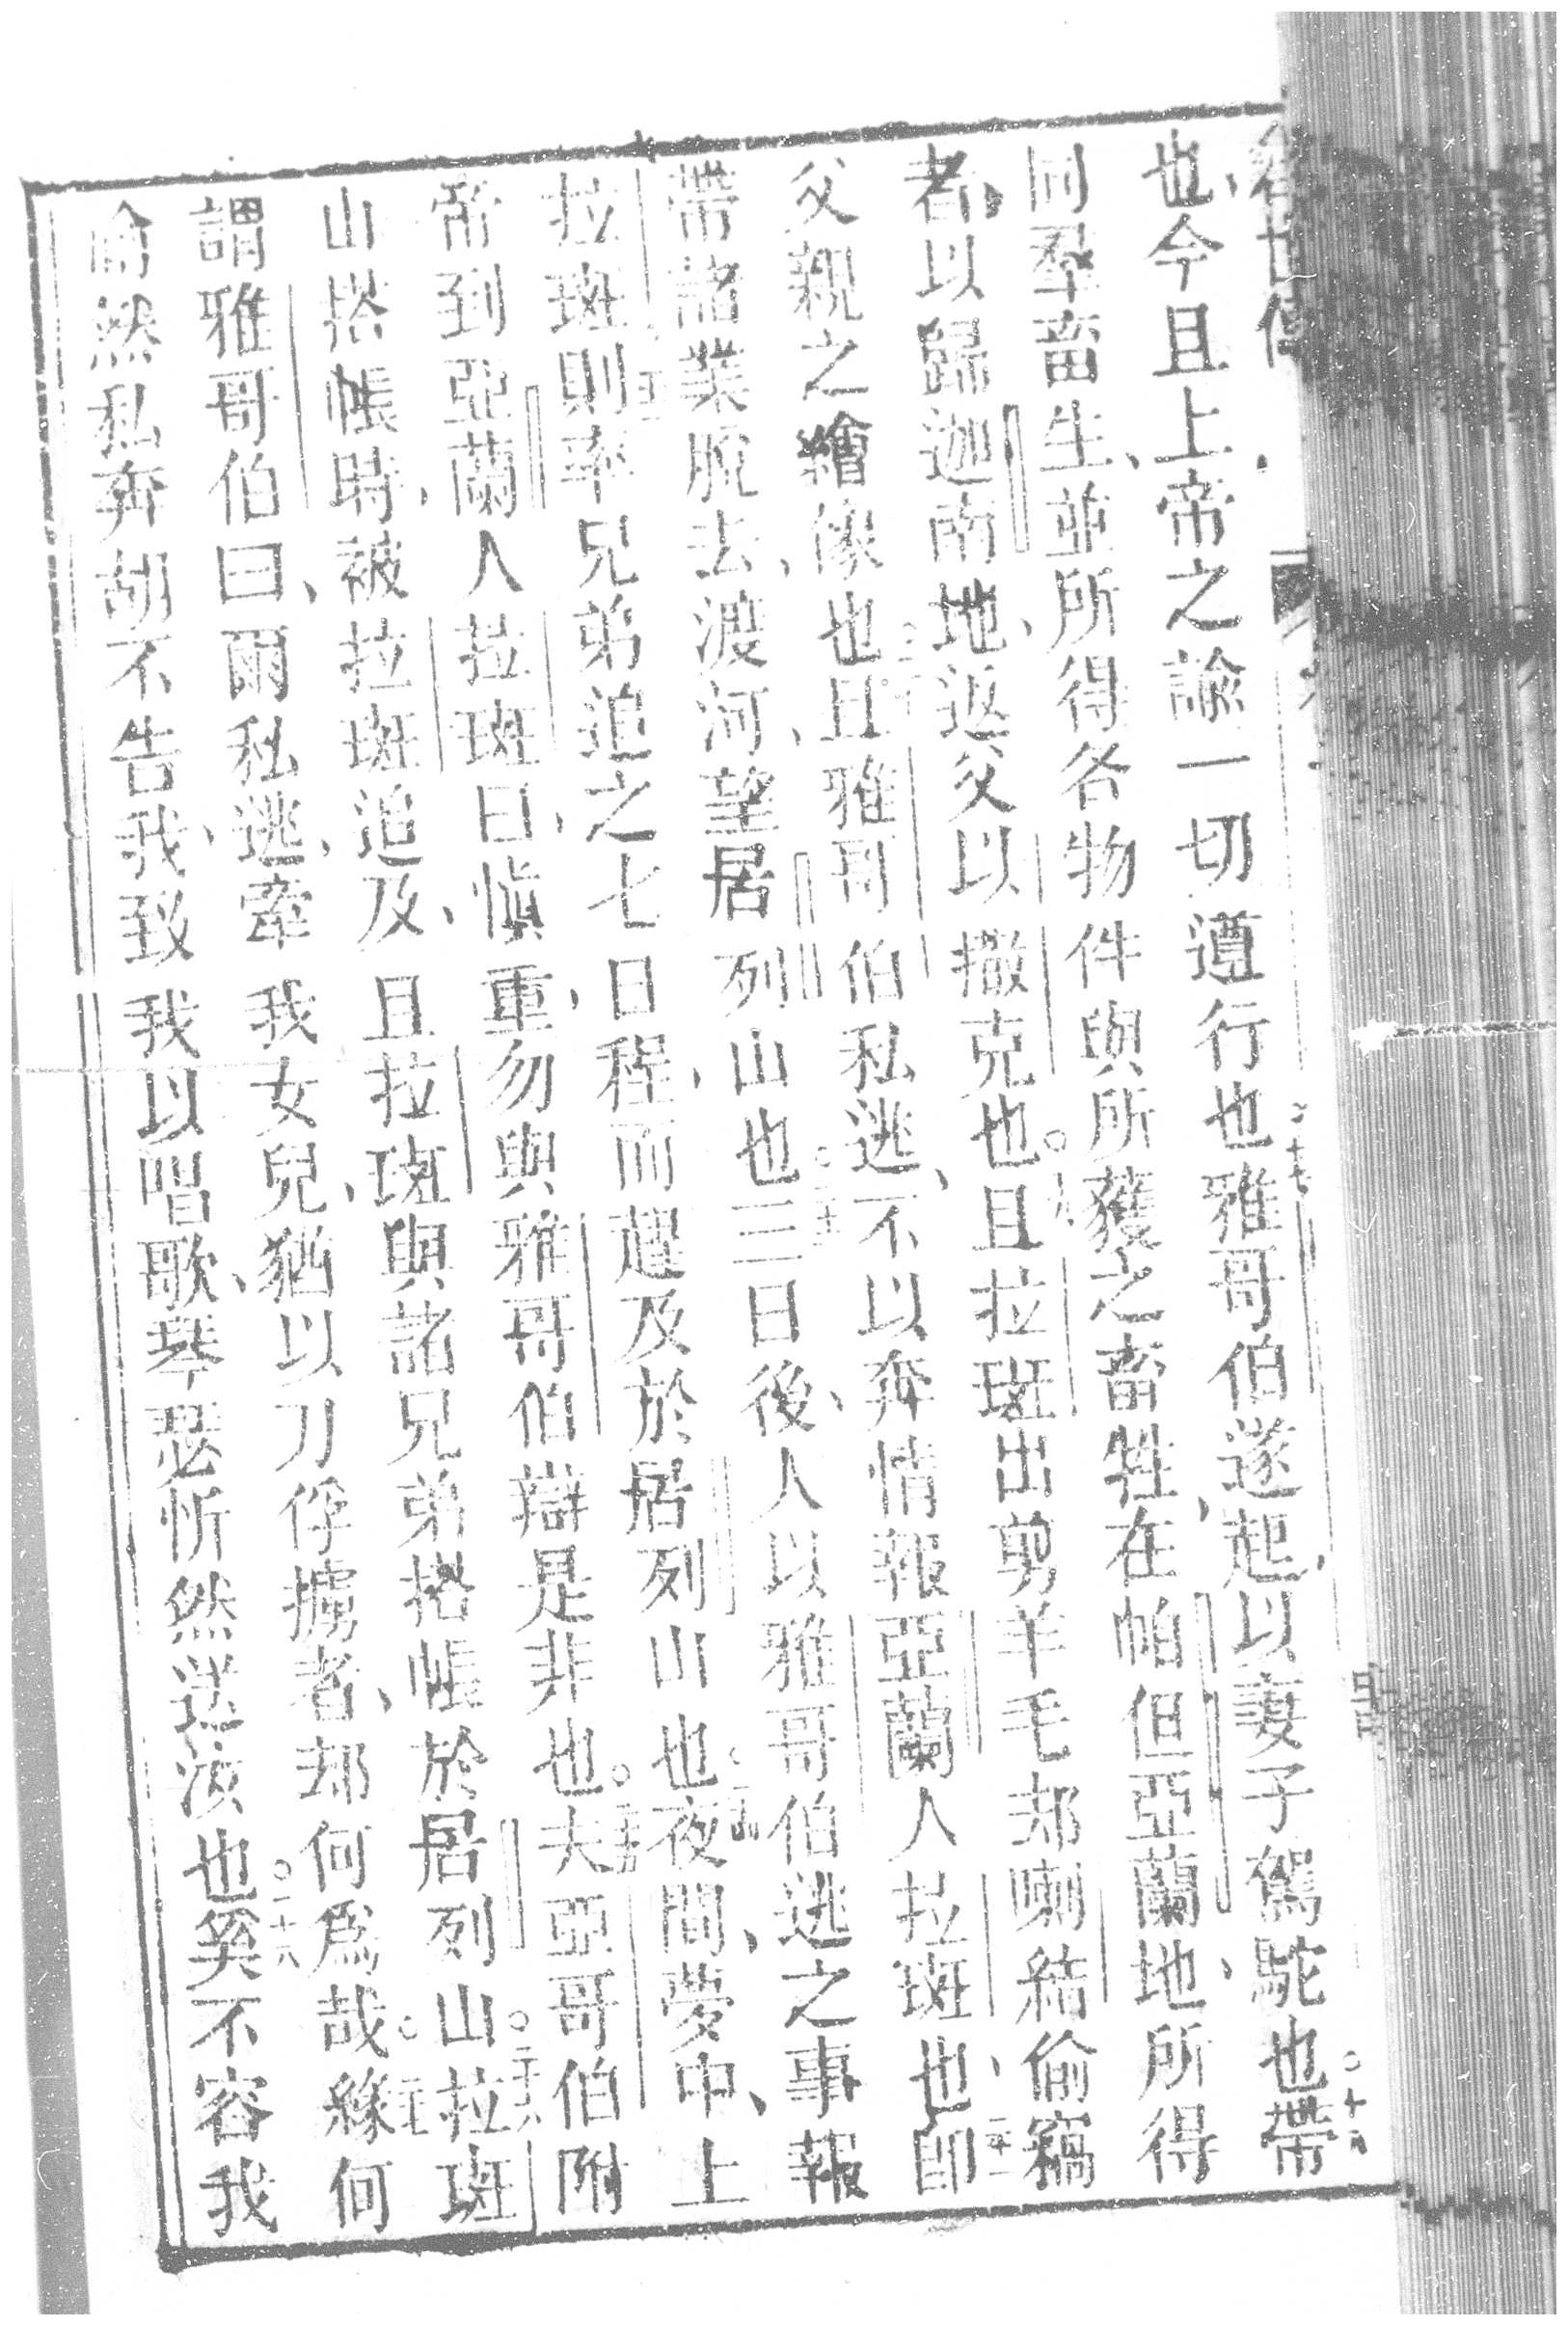 也、今且上帝之諭一切遵行也。十七雅哥伯遂起、以妻子駕駝也。十八帶
同羣畜生、並所得各物件與所獲之畜牲、在帕但亞蘭地、所得
者、以歸迦南地、返父以撒克也。十九且拉班出剪羊毛却喇結偷竊
父親之繪像也。二十且雅哥伯私逃、不以奔情報亞蘭人拉班也、二十一即
帶諸業脫去、渡河、望居列山也。二十二三日後、人以雅哥伯逃之事報
拉班、二十三則率兄弟追之七日程、而趕及於居列山也。二十四夜間、夢中、上
帝到亞蘭人拉班曰、愼重、勿與雅哥伯辯是非也。二十五夫亞哥伯附
山搭帳時、被拉班追及、且拉班與諸兄弟搭帳於居列山。二十六拉班
謂雅哥伯曰、爾私逃、牽我女兒、猶以刀俘擄者、却何爲哉。二十七緣何
偷然私奔胡不告我、致我以唱歌、琴瑟忻然送汝也。二十八奚不容我